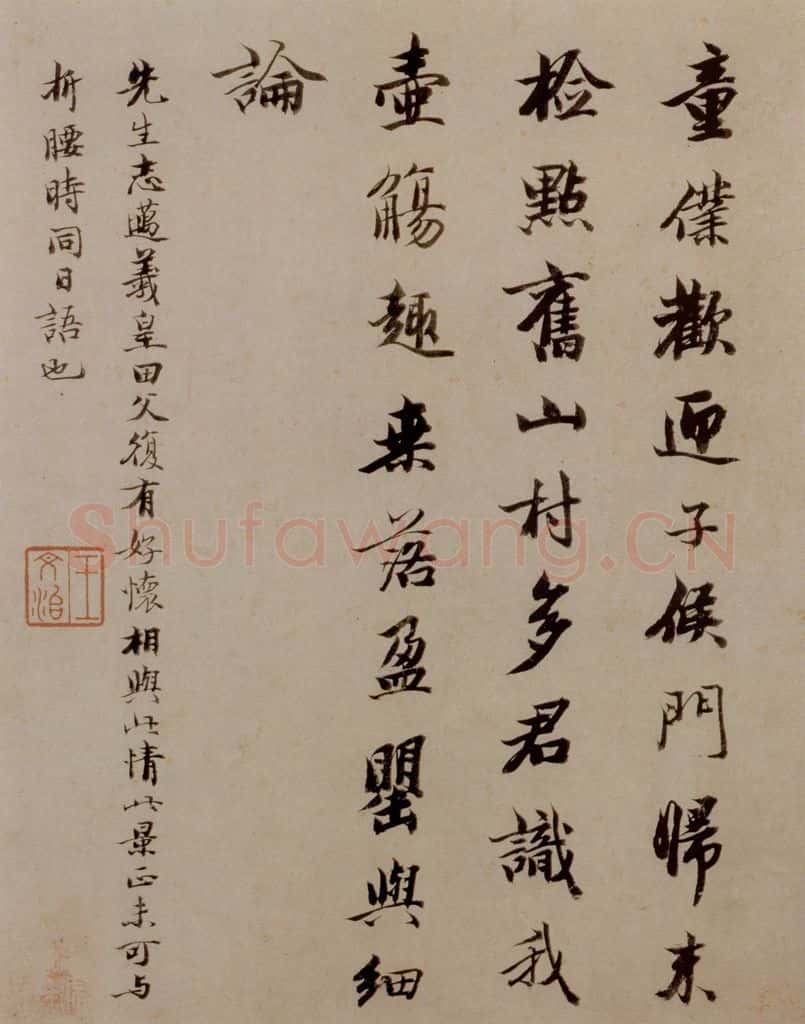 童僕歡迎子候門歸未
检點舊山村多君識我
壷觴趣来落盈罌與細
論
先生志邁羲皇田父復有好懷相與此情此景正未可与
折腰時同日語也
王文治
Shufawang.CN